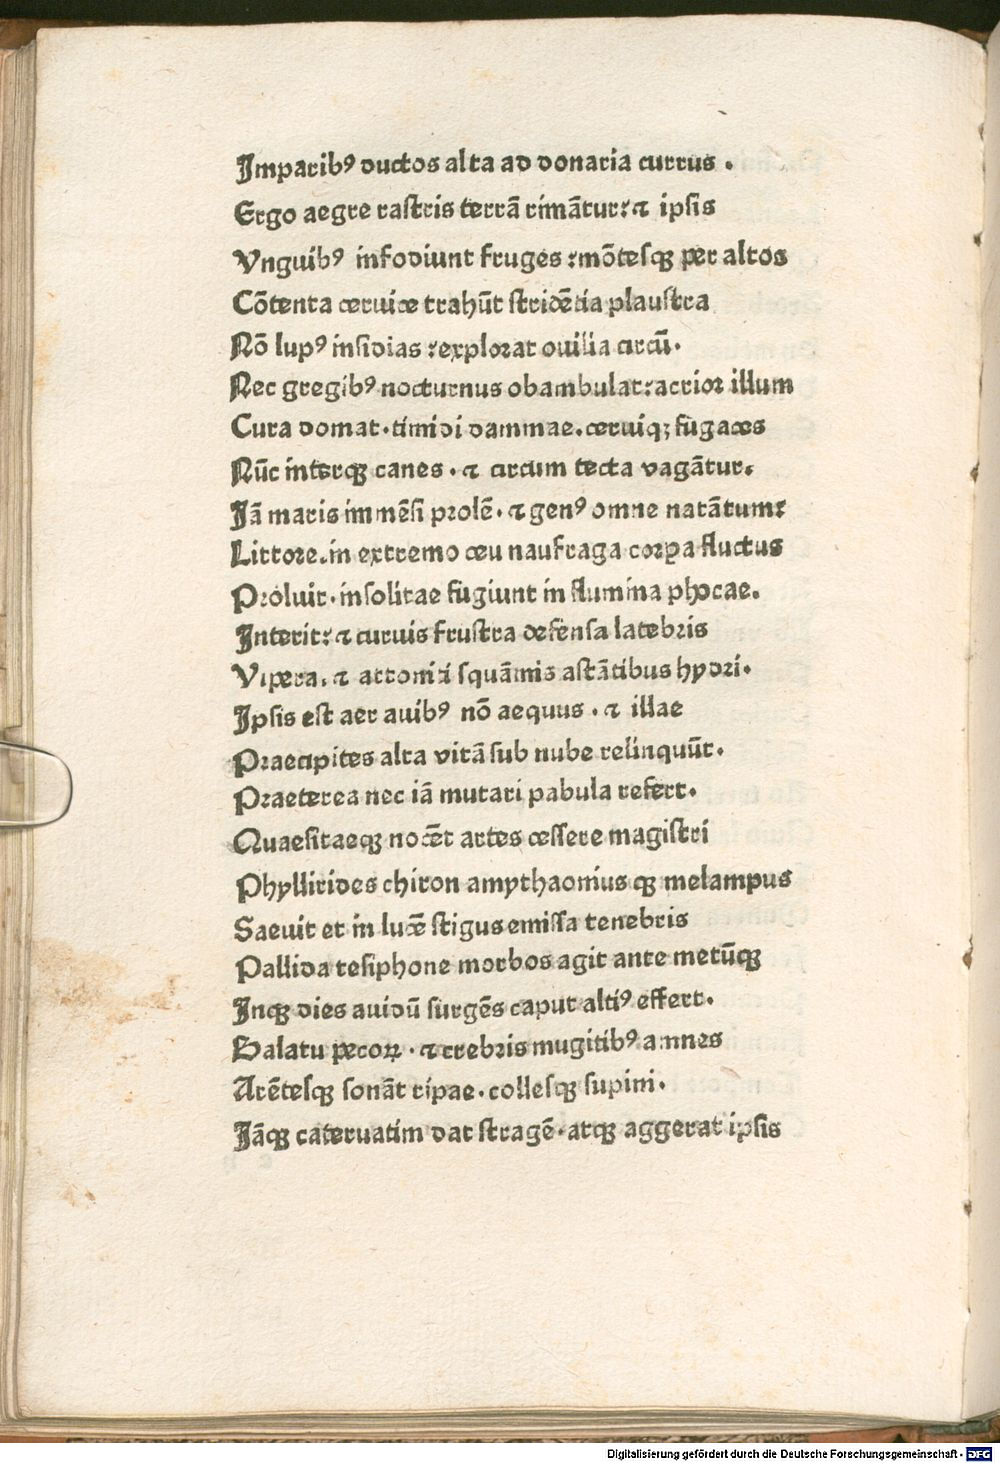 Imparibꝰ ductos alta ad donaria currus .
Ergo aegre rastris terrā rimātur: ⁊ ipsis
Vnguibꝰ infodiunt fruges : mōtesqꝫ per altos
Cōtenta ceruice trahūt stridētia plaustra
Nō lupꝰ insidias : explorat ouilia circū.
Nec gregibꝰ nocturnus obambulat: acrior illum
Cura domat. timidi dammae. ceruiqꝫ fugaces
Nūc interqꝫ canes . ⁊ circum tecta vagātur.
Jā maris immēsi prolē. ⁊ genꝰ omne natātum:
Littore. in extremo ceu naufraga corꝑa fluctus
Proluit. insolitae fugiunt in flumina phocae.
Interit: ⁊ curuis frustra defensa latebris
Vipera. ⁊ attoniti squāmis astātibus hydri.
Ipsis est aer auibꝰ nō aequus . ⁊ illae
Praecipites alta vitā sub nube relinquūt.
Praeterea nec iā mutari pabula refert.
Quaesitaeqꝫ nocēt artes cessere magistri
Phyllirides chiron amythaonius qꝫ melampus
Saeuit et in lucē stigus emissa tenebris
Pallida tesiphone morbos agit ante metūqꝫ
Inqꝫ dies auidū surgēs caput altiꝰ effert.
Balatu pecoꝝ . ⁊ crebris mugitibꝰ amnes
Arētesqꝫ sonāt ripae. collesqꝫ supini.
Jāqꝫ cateruatim dat stragē. atqꝫ aggerat ipsis
Digitalisierung gefördert durch die Deutsche Forschungsgemeinschaft - DFG